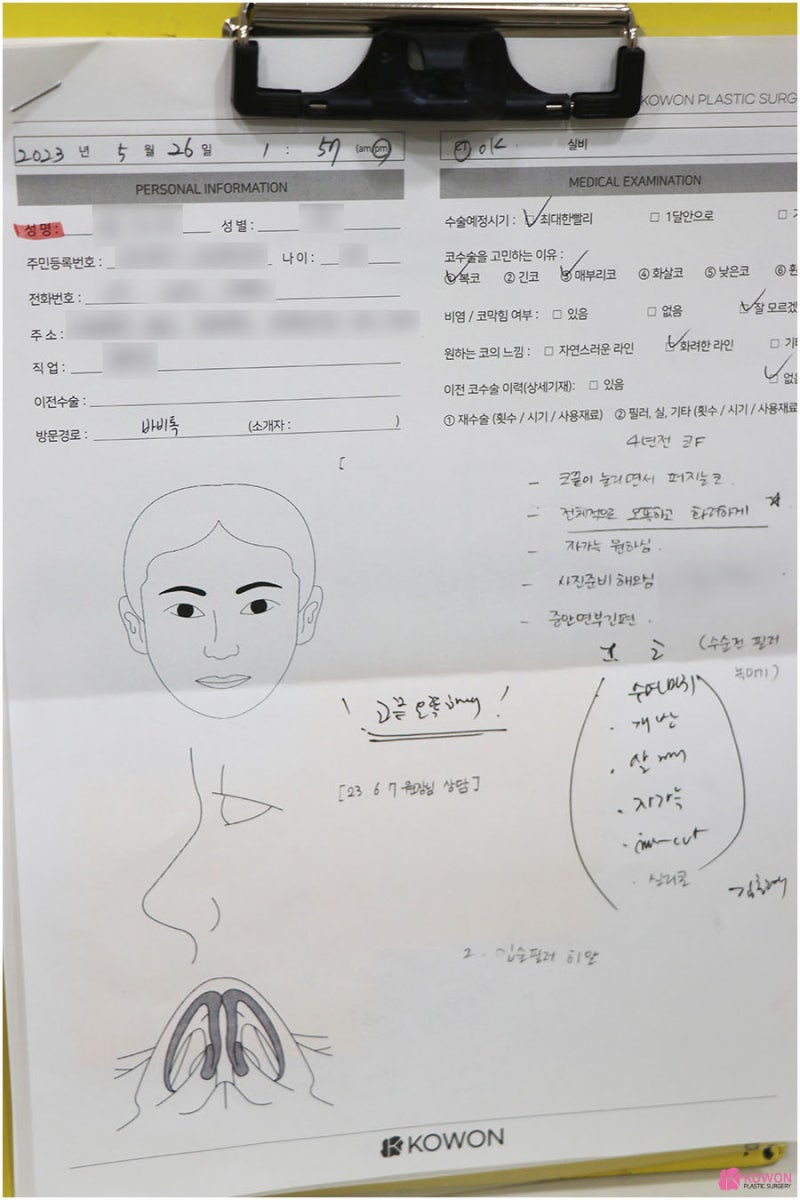 KOWON PLASTIC SURG
2023 년 5 월 26 일 1 : 57 (am/pm)
실비
PERSONAL INFORMATION
MEDICAL EXAMINATION
성명 : 성별 :
주민등록번호 : 나이 :
전화번호 :
주소 :
직업 :
이전수술 :
방문경로 : 바비톡 (소개자 : )
수술예정시기 : 최대한빨리 1달안으로
코수술을 고민하는 이유 :
① 복코 ② 긴코 ③ 매부리코 ④ 화살코 ⑤ 낮은코 ⑥
비염 / 코막힘 여부 : 있음 없음 잘 모르겠
원하는 코의 느낌 : 자연스러운 라인 화려한 라인 기타
이전 코수술 이력(상세기재): 있음 없음
① 재수술 (횟수 / 시기 / 사용재료) ② 필러, 실, 기타 (횟수 / 시기 / 사용재료
4년전 코F
- 코끝이 눌리면서 퍼지는코
- 전체적으로 오똑하고 화려하게
- 자가늑 원하심.
- 사진준비 해오심
- 중안면부긴편
(수술전 필러
녹이기)
자가늑
실리콘
코끝 오똑하게 !
[23 6 7 원장님 상담]
2. 입술필러 히알
KOWON
KOWON
PLASTIC SURGERY